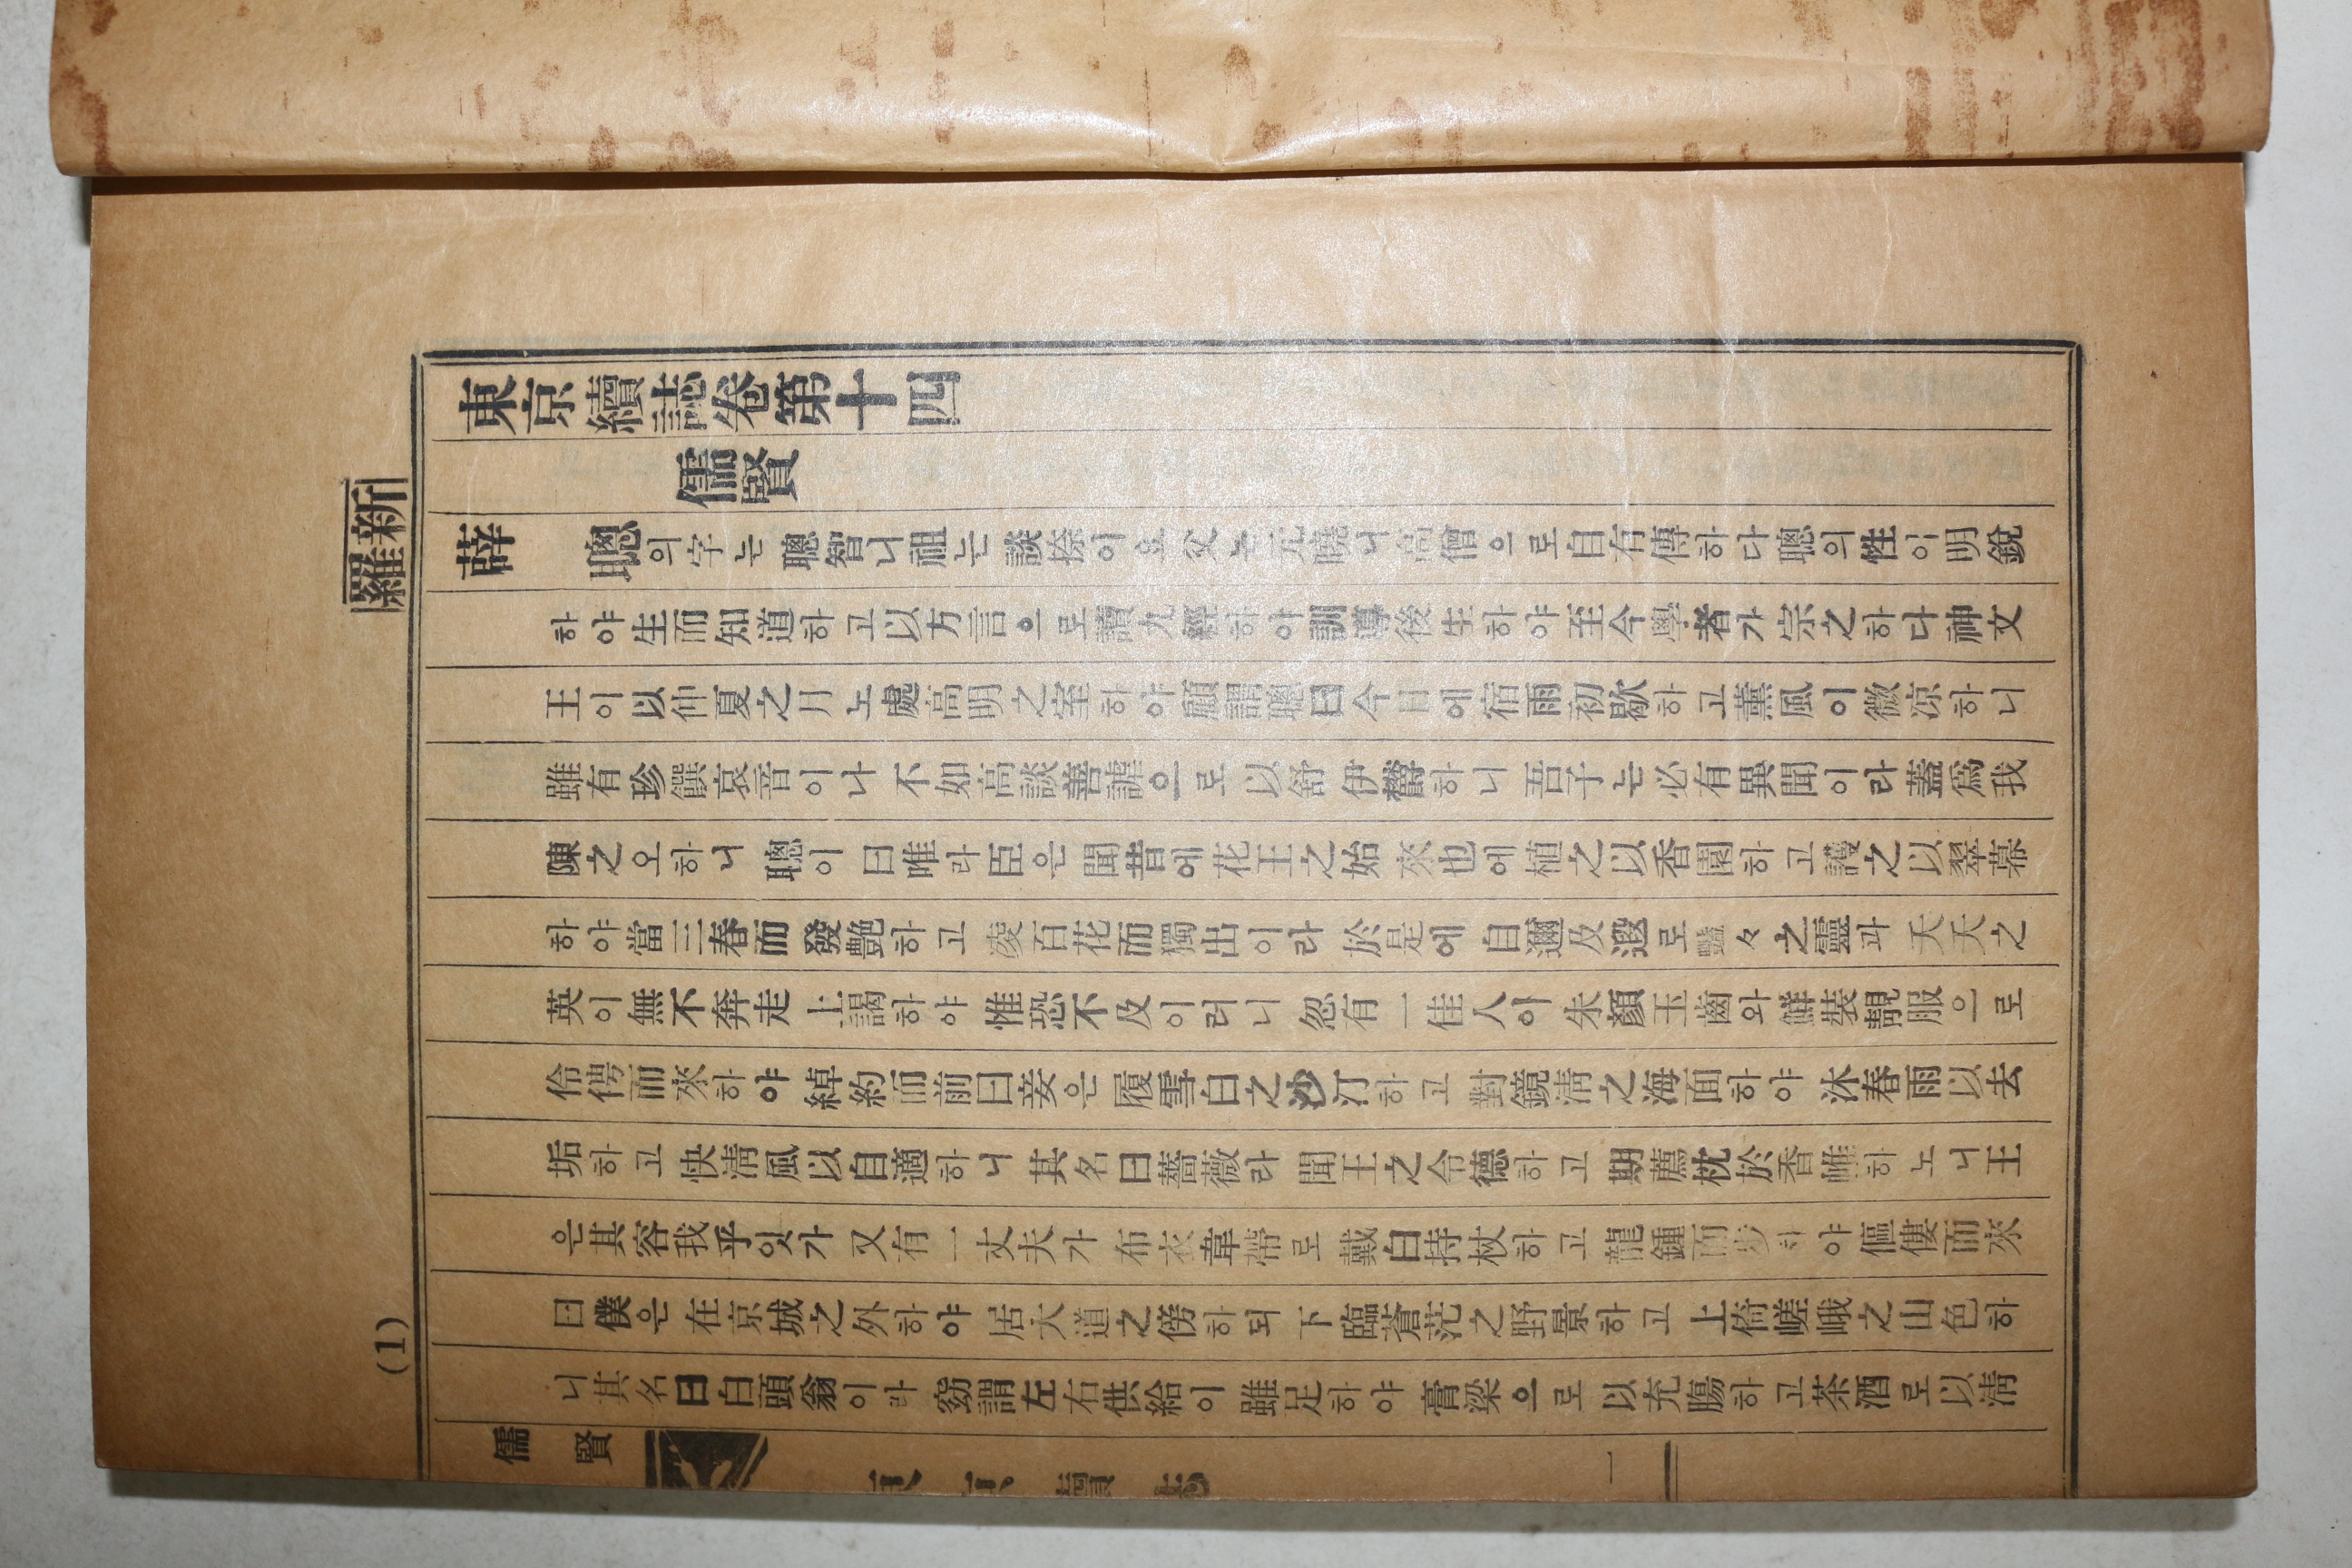 東京續誌卷第十四
儒賢
新羅
薛聰의字는聰智니祖는談捺이요父는元曉니高僧으로自有傳하다聰의性이明銳
하야生而知道하고以方言으로讀九經하야訓導後生하야至今學者가宗之하다神文
王이以仲夏之月노處高明之室하야顧謂聰曰今日에宿雨初歇하고薰風이微凉하니
雖有珍饌哀音이나不如高談善謔으로以舒伊欝하니吾子는必有異聞이라蓋爲我
陳之오하니聰이曰唯라臣은聞昔에花王之始來也에植之以香園하고護之以翠幕
하야當三春而發艶하고凌百花而獨出이라於是에自邇及遐로艶々之靈과夭夭之
英이無不奔走上謁하야惟恐不及이러니忽有一佳人이朱顏玉齒와鮮裝靚服으로
伶俜而來하야綽約而前曰妾은履雪白之沙汀하고對鏡淸之海面하야沐春雨以去
垢하고快淸風以自適하니其名曰薔薇라聞王之令德하고期薦枕於香帷하노니王
은其容我乎잇가又有一丈夫가布衣韋帶로戴白持杖하고龍鍾而步하야傴僂而來
曰僕은在京城之外하야居大道之傍하되下臨蒼茫之野景하고上倚嵯峨之山色하
니其名曰白頭翁이라竊謂左右供給이雖足하야膏粱으로以充膓하고茶酒로以淸
(1)
儒賢
一